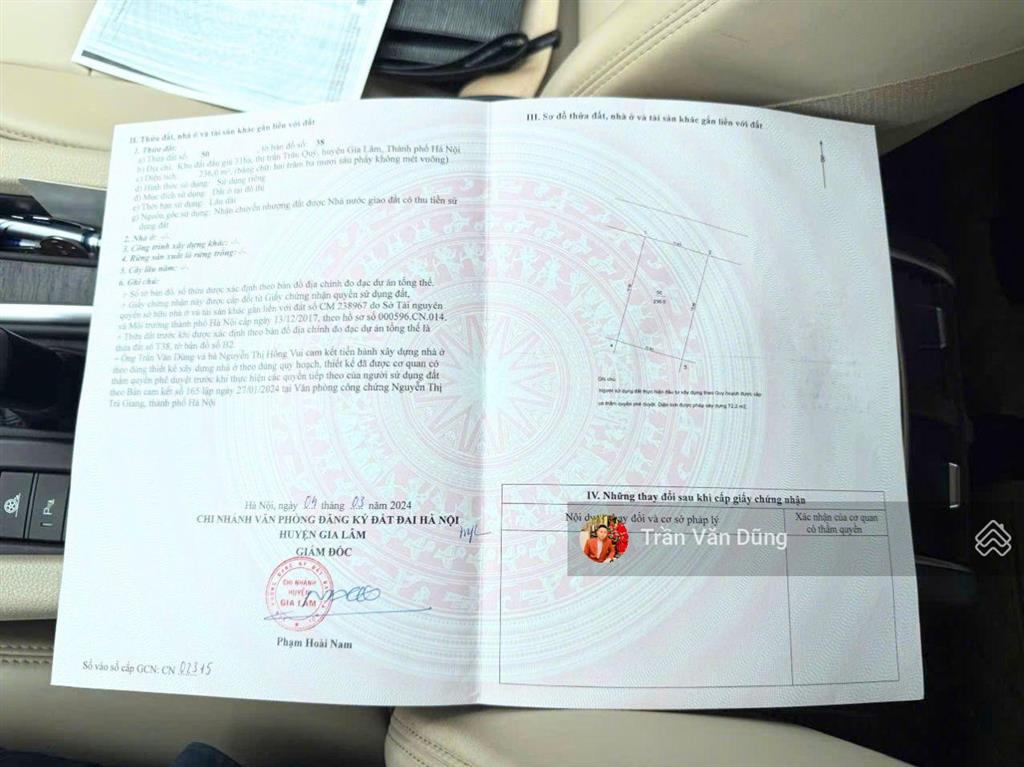 II. Thửa đất, nhà ở và tài sản khác gắn liền với đất
1. Thửa đất:
a) Thửa đất số: 50 , tờ bản đồ số: 38
b) Địa chỉ: Khu đất đấu giá 31ha, thị trấn Trâu Quỳ, huyện Gia Lâm, Thành phố Hà Nội
c) Diện tích: 236,0 m², (bằng chữ: hai trăm ba mươi sáu phẩy không mét vuông)
d) Hình thức sử dụng: Sử dụng riêng
đ) Mục đích sử dụng: Đất ở tại đô thị
e) Thời hạn sử dụng: Lâu dài
g) Nguồn gốc sử dụng: Nhận chuyển nhượng đất được Nhà nước giao đất có thu tiền sử
dụng đất
2. Nhà ở: -/-.
3. Công trình xây dựng khác: -/-.
4. Rừng sản xuất là rừng trồng: -/-.
5. Cây lâu năm: -/-.
6. Ghi chú:
+ Số tờ bản đồ, số thửa được xác định theo bản đồ địa chính đo đạc dự án tổng thể.
+ Giấy chứng nhận này được cấp đổi từ Giấy chứng nhận quyền sử dụng đất,
quyền sở hữu nhà ở và tài sản khác gắn liền với đất số CM 238967 do Sở Tài nguyên
và Môi trường thành phố Hà Nội cấp ngày 13/12/2017, theo hồ sơ số 000596.CN.014.
+ Thửa đất trước khi được xác định theo bản đồ địa chính đo đạc dự án tổng thể là
thửa đất số T38, tờ bản đồ số B2.
– Ông Trần Văn Dũng và bà Nguyễn Thị Hồng Vui cam kết tiến hành xây dựng nhà ở
theo đúng thiết kế xây dựng nhà ở theo đúng quy hoạch, thiết kế đã được cơ quan có
thẩm quyền phê duyệt trước khi thực hiện các quyền tiếp theo của người sử dụng đất
theo Bản cam kết số 165 lập ngày 27/01/2024 tại Văn phòng công chứng Nguyễn Thị
Trà Giang, thành phố Hà Nội
Hà Nội, ngày 04 tháng 03 năm 2024
CHI NHÁNH VĂN PHÒNG ĐĂNG KÝ ĐẤT ĐAI HÀ NỘI
HUYỆN GIA LÂM
GIÁM ĐỐC
CHI NHÁNH
HUYỆN
GIA LÂM
Phạm Hoài Nam
Số vào sổ cấp GCN: CN 02315
III. Sơ đồ thửa đất, nhà ở và tài sản khác gắn liền với đất
B
1
2
50
236.0
4
3
Ghi chú:
Người sử dụng đất thực hiện đầu tư xây dựng theo Quy hoạch được cấp
có thẩm quyền phê duyệt. Diện tích được phép xây dựng 72.2 m2.
IV. Những thay đổi sau khi cấp giấy chứng nhận
Nội dung thay đổi và cơ sở pháp lý
Xác nhận của cơ quan
có thẩm quyền
Trần Văn Dũng